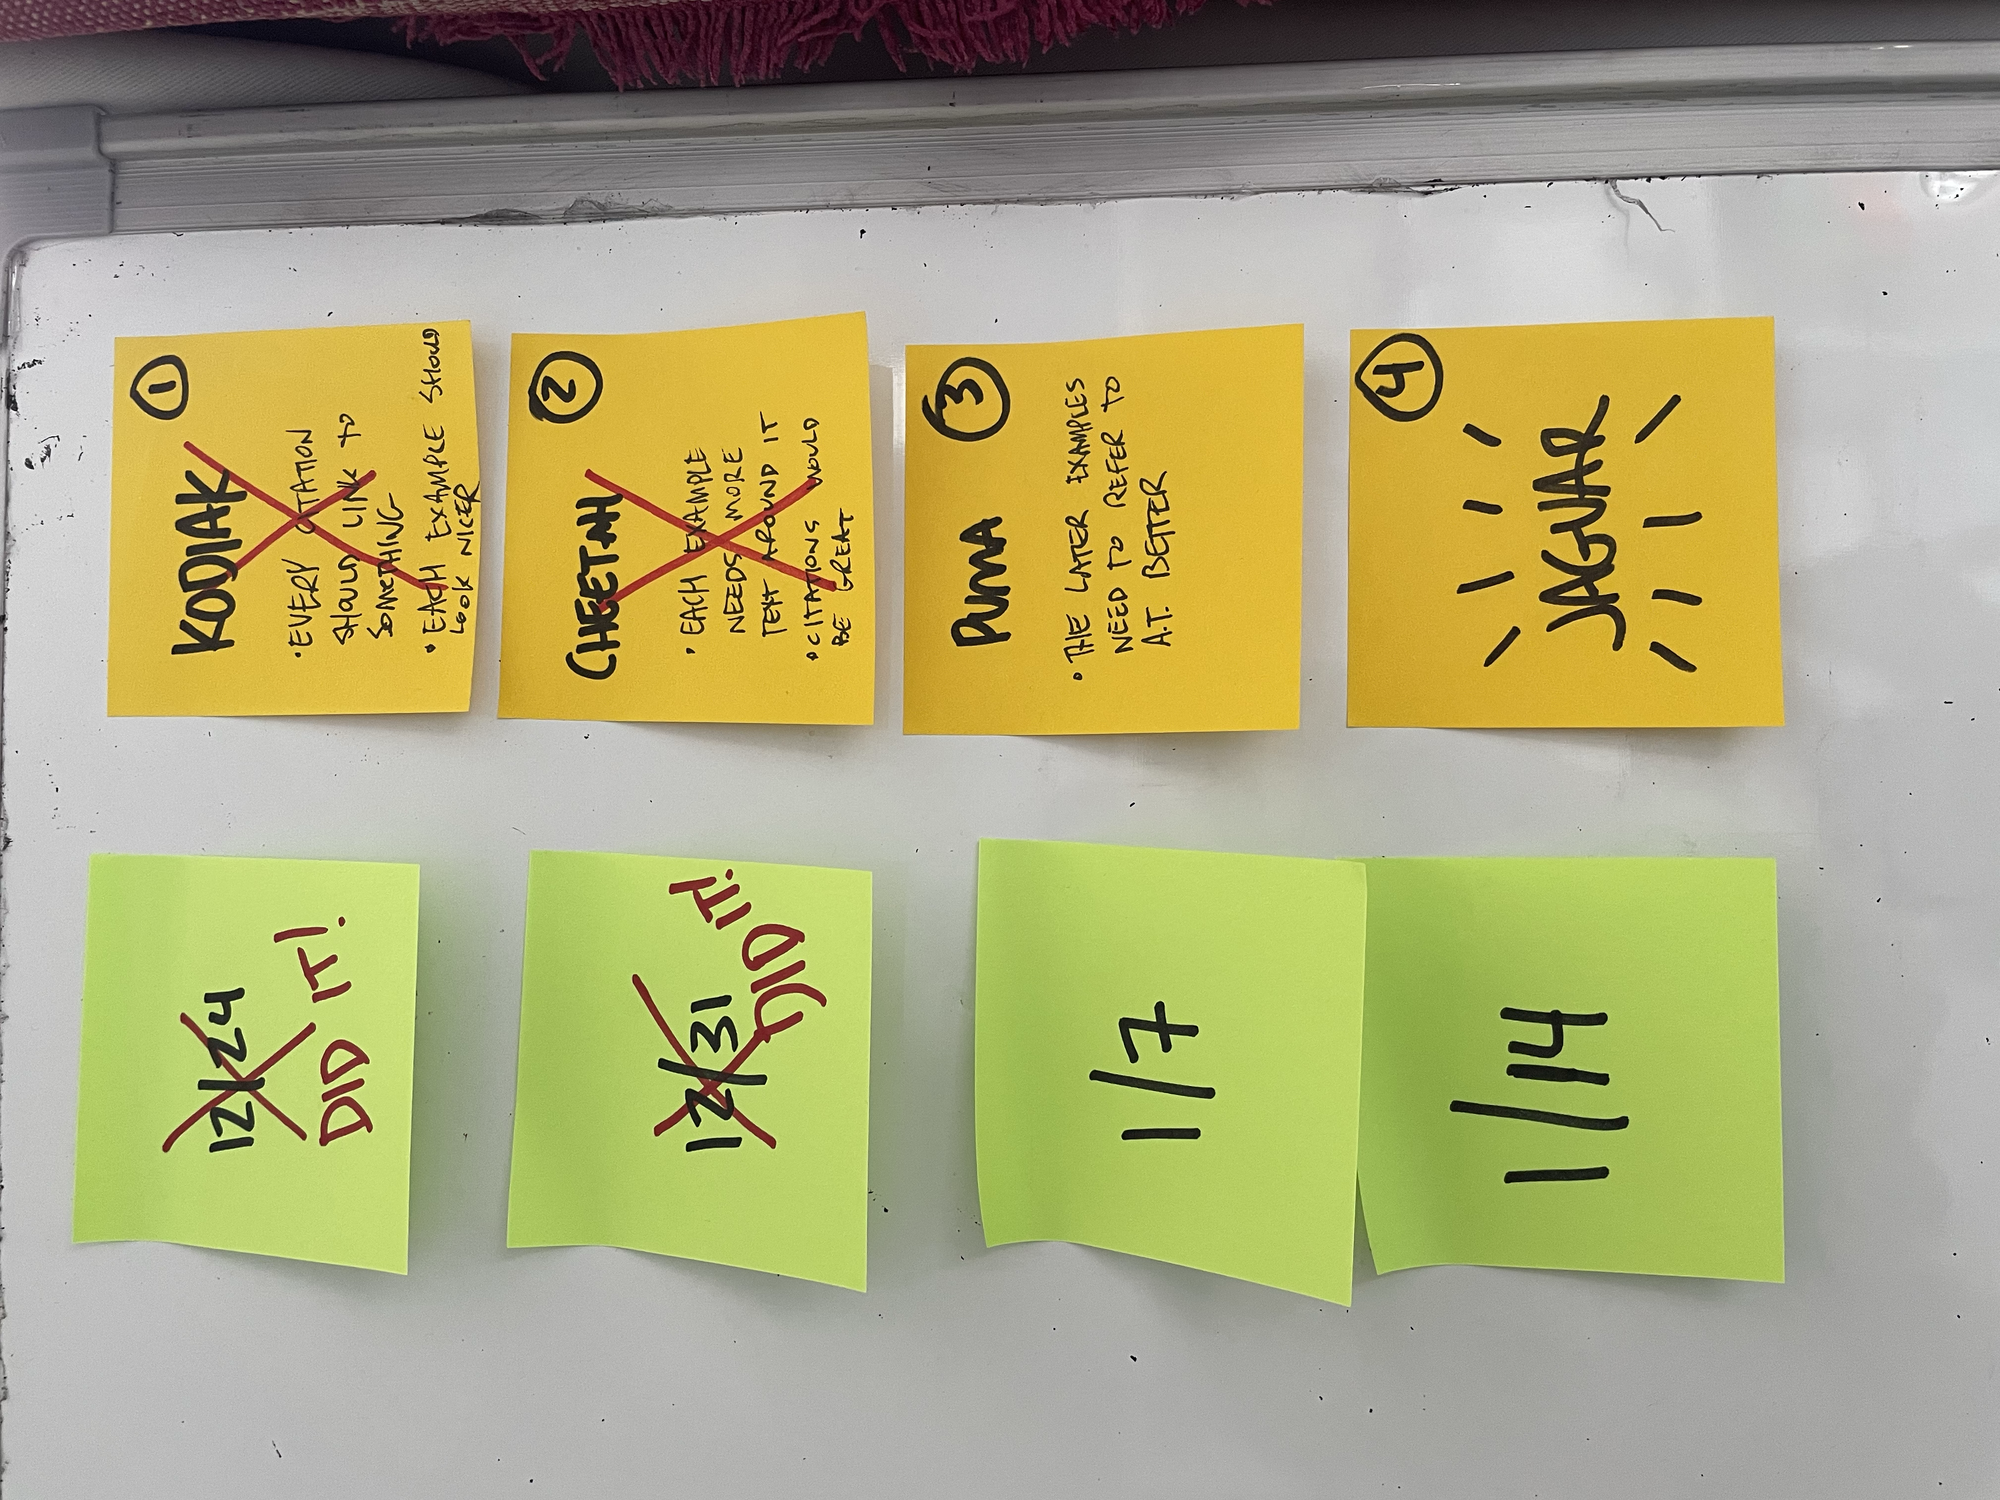 1
KODIAK
• EVERY CITATION
SHOULD LINK TO
SOMETHING
• EACH EXAMPLE SHOULD
LOOK NICER
12/24
DID IT!
2
CHEETAH
• EACH EXAMPLE
NEEDS MORE
TEXT AROUND IT
• CITATIONS WOULD
BE GREAT
12/31
DID IT!
3
PUMA
• THE LATER EXAMPLES
NEED TO REFER TO
A.T. BETTER
1/7
4
JAGUAR
1/14